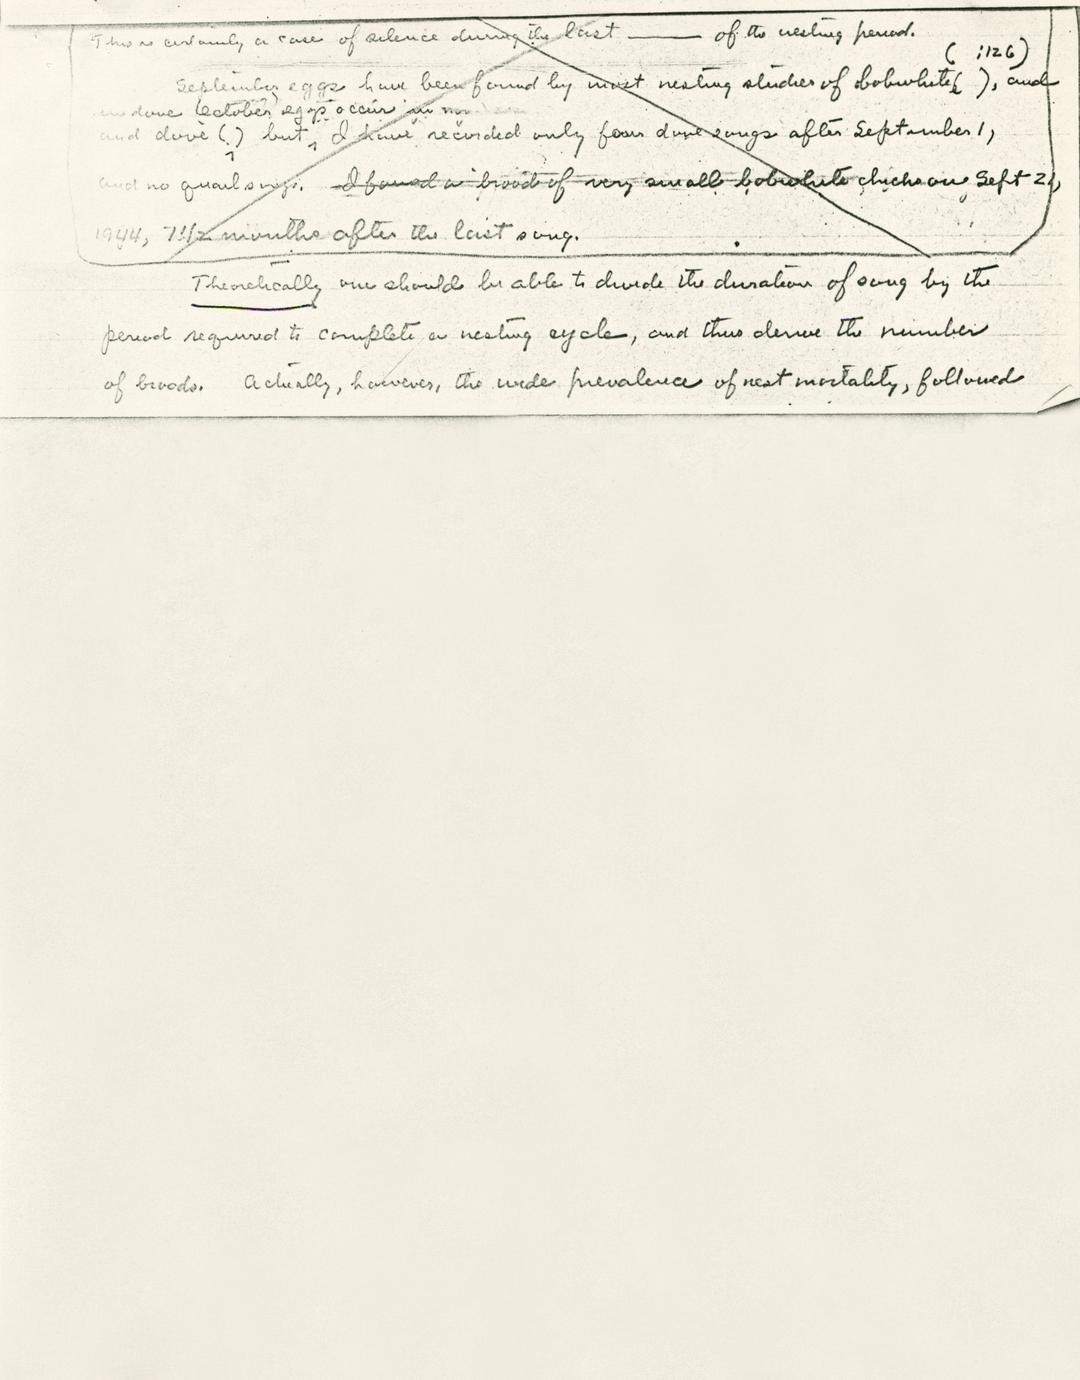 This is certainly a case of silence during the last ——— of the nesting period.
( :126)
September eggs have been found by most nesting studies of bobwhite ( ), and
in dove October eggs occur in
and dove ( ) but, I have recorded only four dove songs after September 1,
and no quail songs. I found a brood of very small bobwhite chicks on Sept 21,
1944, 7 1/2 months after the last song.
Theoretically one should be able to divide the duration of song by the
period required to complete a nesting cycle, and thus derive the number
of broods. Actually, however, the wide prevalence of nest mortality, followed